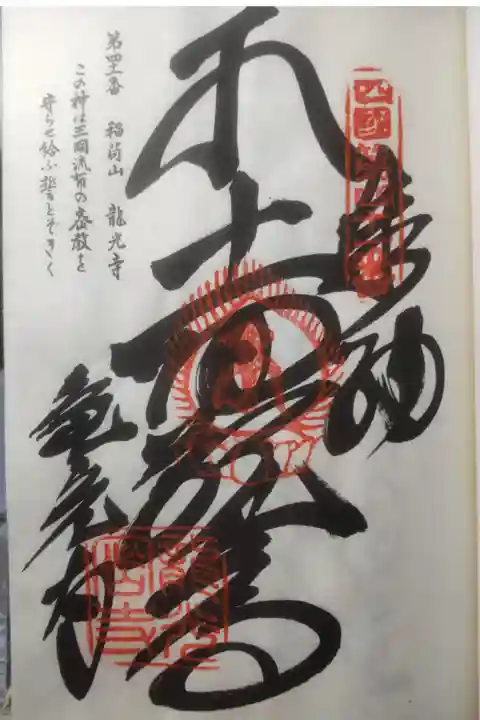 四國第四十一番
奉納
十一面
竜光寺
第四十一番 稲荷山 龍光寺
この神は三国流布の密教を
守らせ給ふ誓とぞきく